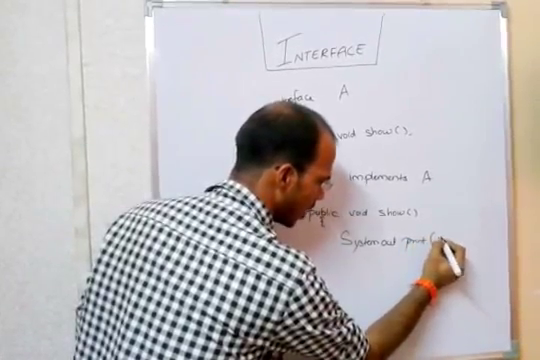 INTERFACE
erface A
void show();
implements A
public void show()
System.out.print(